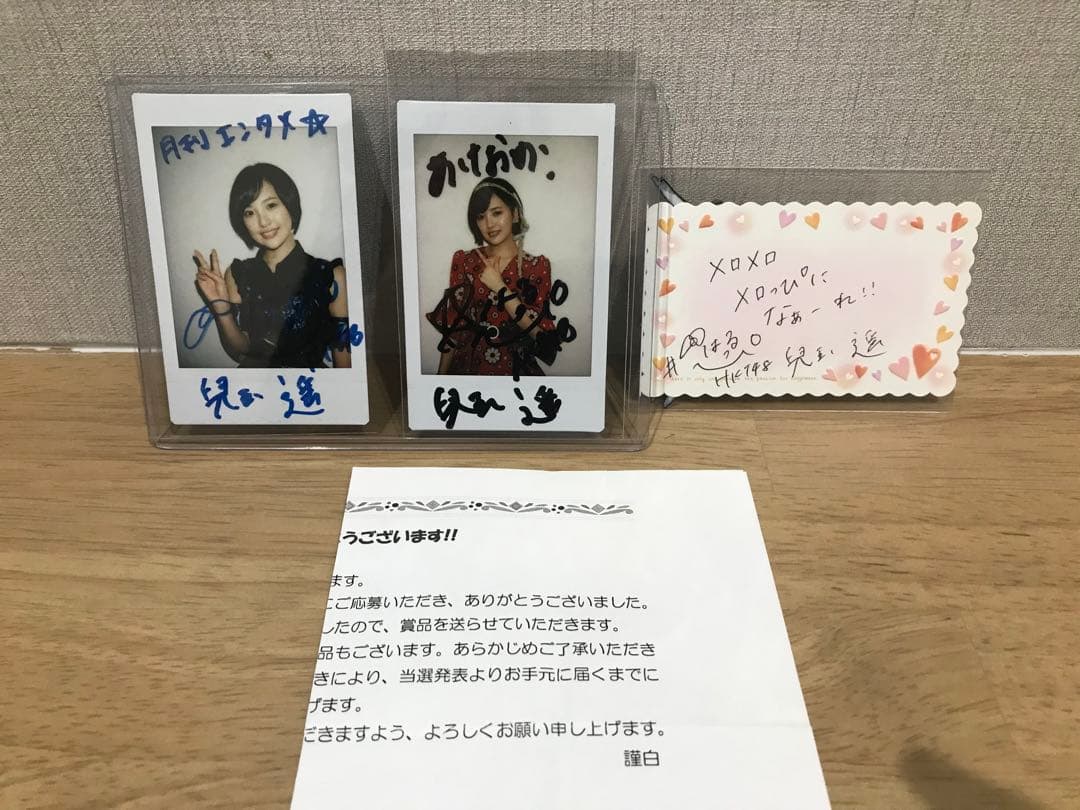 月刊エンタメ☆
兒玉 遥
あけおめ.
兒玉 遥
メロメロ
メロっぴに
なぁーれ!!
#はるっぴ
HKT48 兒玉 遥
うございます!!
ます。
にご応募いただき、ありがとうございました。
したので、賞品を送らせていただきます。
品もございます。あらかじめご了承いただき
きにより、当選発表よりお手元に届くまでに
げます。
だきますよう、よろしくお願い申し上げます。
謹白